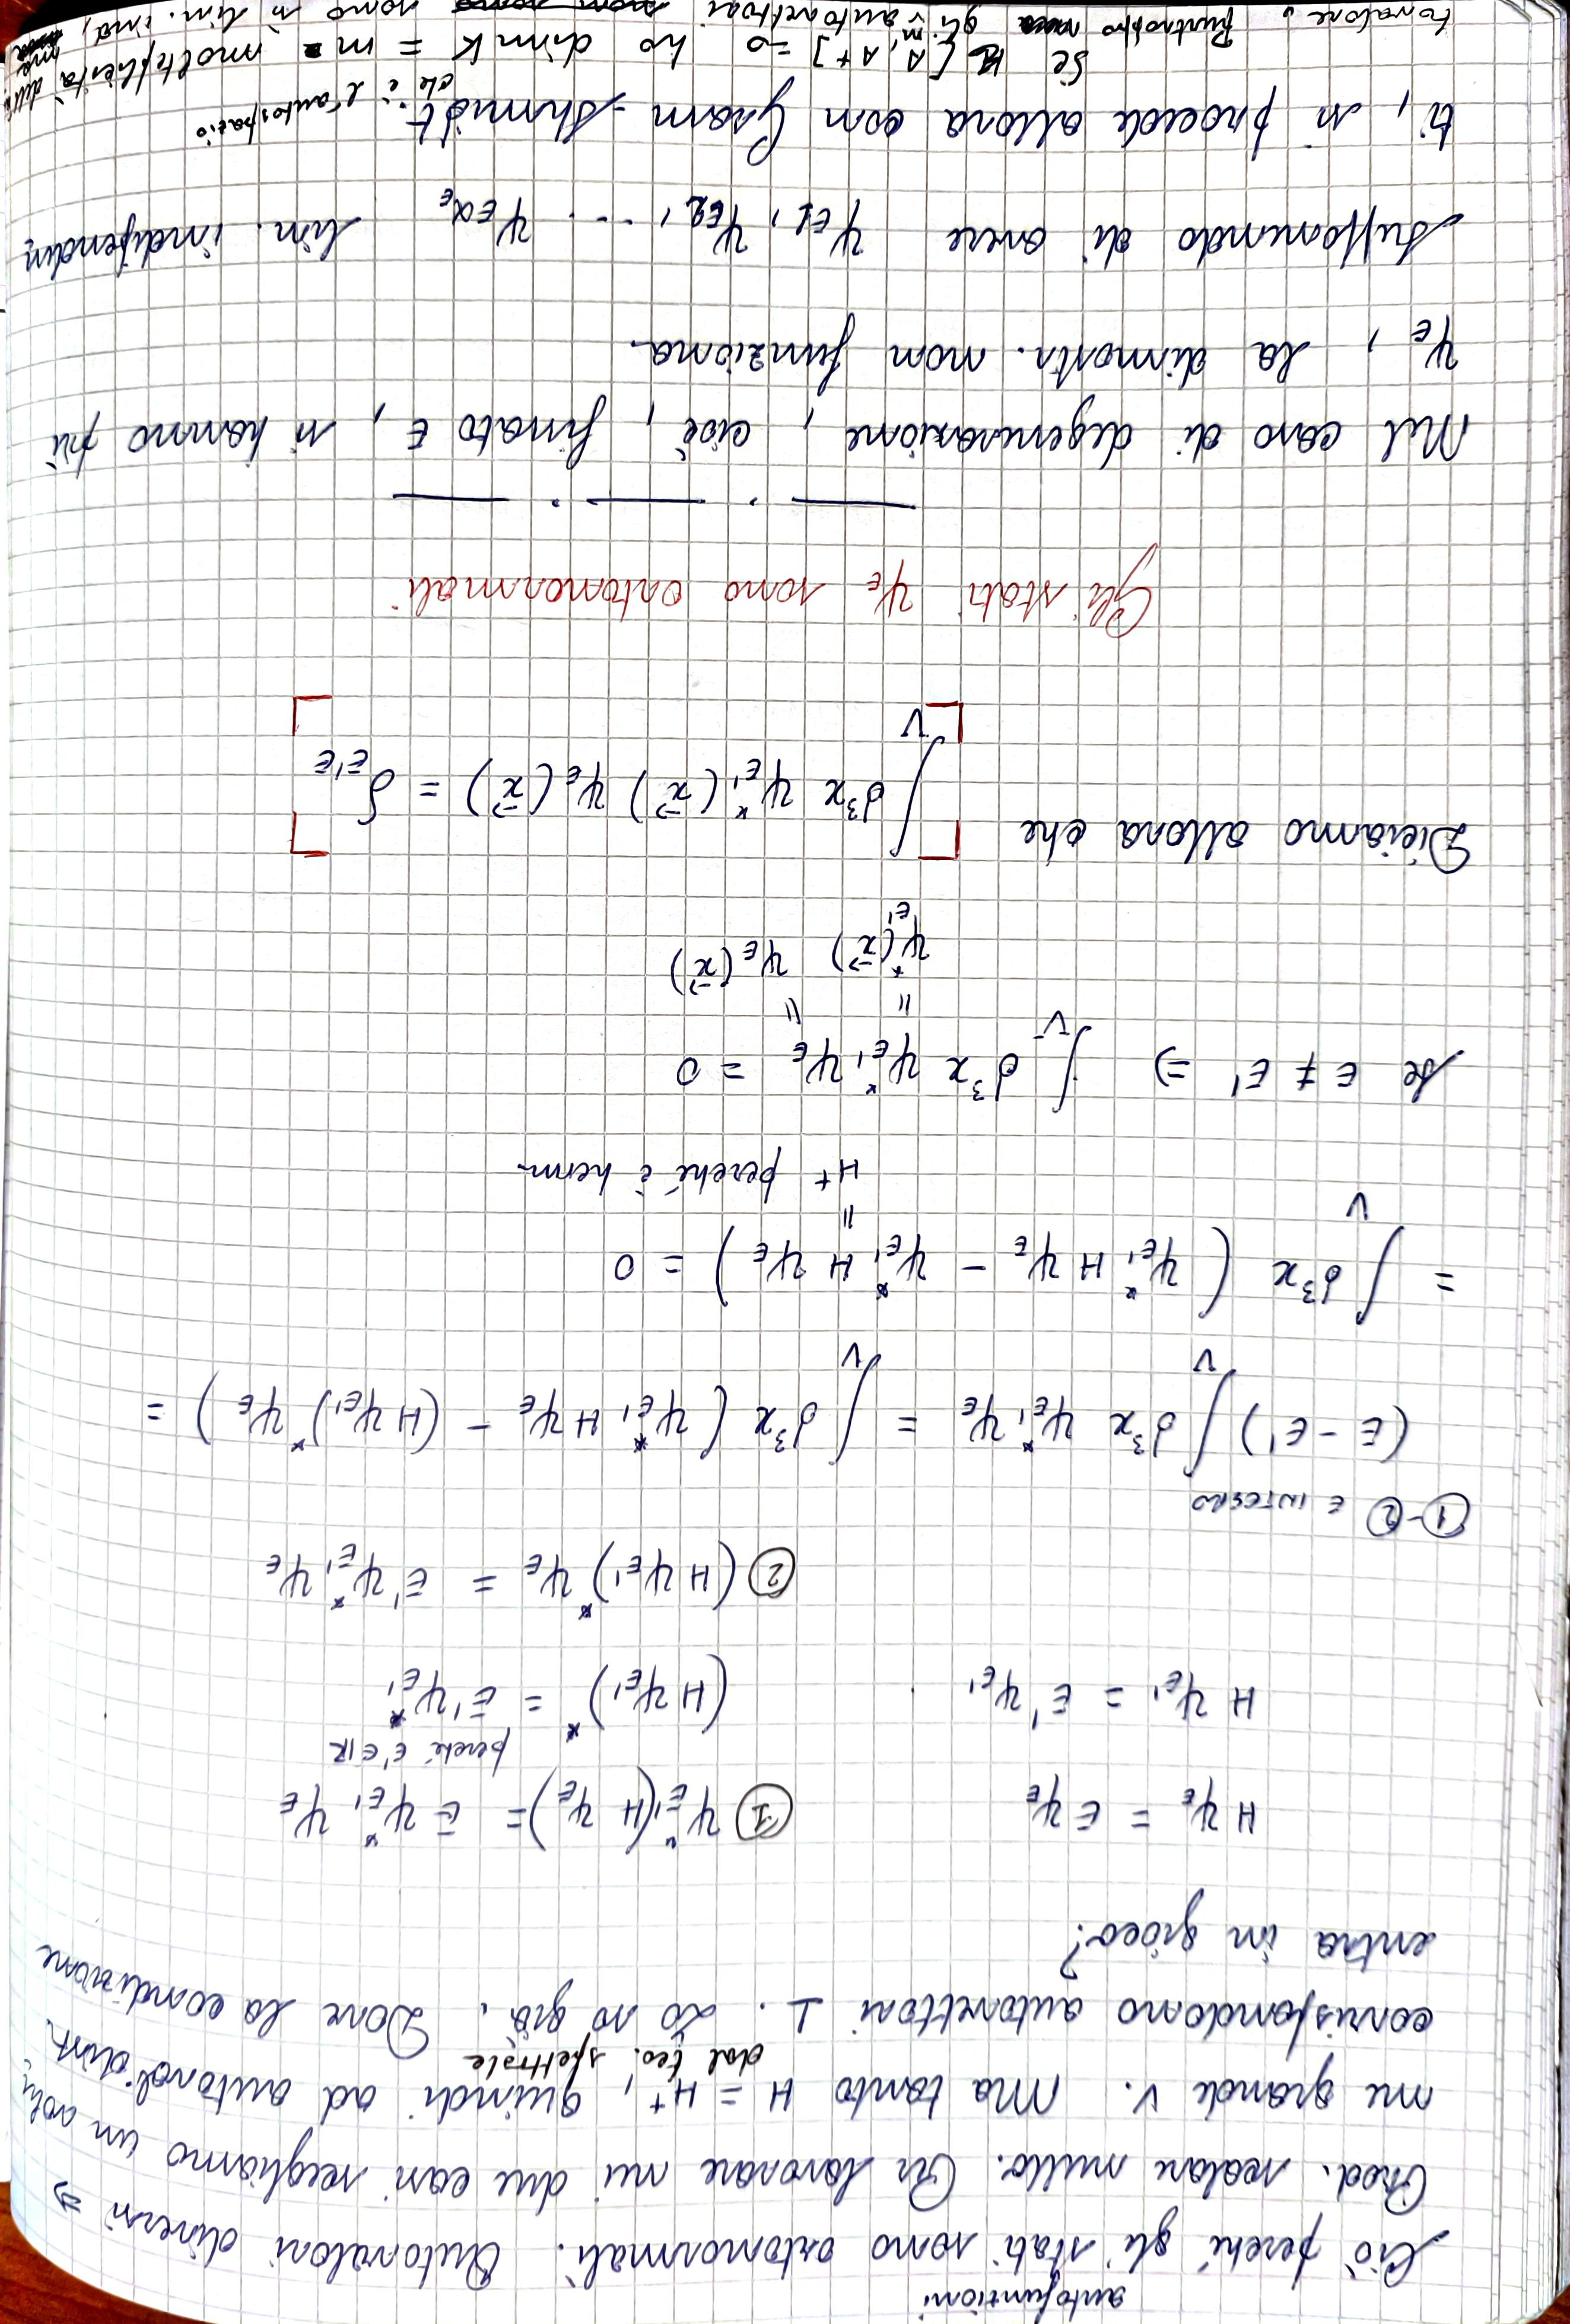 autofunzioni
Ciò perché gli stati sono ortonormali. Autovalori diversi ⇒
Prod. scalare nullo. Per lavorare nei due casi scegliamo un volu
me grande V. Ma tanto H = H⁺, quindi ad autoval. dist.
dal teo. spettrale
corrispondono autovettori ⊥. Lo so già. Dove la condizione
entra in gioco?
H ψ_E = E ψ_E ① ψ*_E' (H ψ_E) = E ψ*_E' ψ_E
perché E' ∈ ℝ
H ψ_E' = E' ψ_E' (H ψ_E')* = E' ψ*_E'
② (H ψ_E')* ψ_E = E' ψ*_E' ψ_E
①-② E INTEGRO
(E - E') ∫_V d³x ψ*_E' ψ_E = ∫_V d³x (ψ*_E' H ψ_E - (H ψ_E')* ψ_E) =
= ∫_V d³x (ψ*_E' H ψ_E - ψ*_E' H ψ_E) = 0
"
H⁺ perché è herm.
Se E ≠ E' ⇒ ∫_V d³x ψ*_E' ψ_E = 0
" "
ψ*_E'(x⃗) ψ_E(x⃗)
Diciamo allora che [∫_V d³x ψ*_E'(x⃗) ψ_E(x⃗) = δ_E'E]
Gli stati ψ_E sono ortonormali
— . — . —
Nel caso di degenerazione, cioè, fissato E, si hanno più
ψ_E, la dimostr. non funziona.
Supponendo di avere ψ_E1, ψ_E2, ... ψ_Eα_E lin. indipenden
ti, si procede allora con Gram-Shmidt.
che è l'autospazio
Se [A, A⁺] = 0 ho dim K = m molteplicità dell'
tovalore. Purtroppo gli m autovettori sono sì lin. ind,